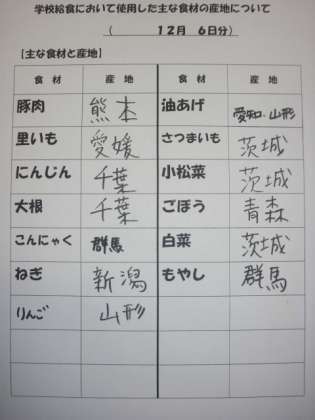 学校給食において使用した主な食材の産地について
（　１２月　６日分）
【主な食材と産地】
食材 産地 食材 産地
豚肉 熊本 油あげ 愛知・山形
里いも 愛媛 さつまいも 茨城
にんじん 千葉 小松菜 茨城
大根 千葉 ごぼう 青森
こんにゃく 群馬 白菜 茨城
ねぎ 新潟 もやし 群馬
りんご 山形